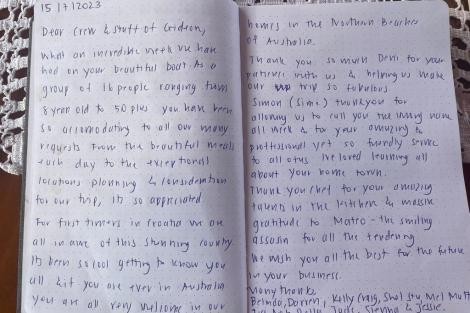 15/7/2023
Dear Crew & staff of Gideon,
What an incredible week we have
had on your beautiful boat. As a
group of 16 people ranging from
8 year old to 50 plus you have been
so accomodating to all our many
requests from the beautiful meals
each day to the exceptional
locations planning & consideration
for our trip, its so appreciated.
For first timers in Croatia we are
all in awe of this stunning country.
Its been so cool getting to know you
all & if you are ever in Australia
you are all very welcome in our
homes in the Northern Beaches
of Australia.
Thank you so much Deni for your
patience with us & helping us make
our trip so fabulous
Simon (Simi) thankyou for
allowing us to call you the wrong name
all week & to your amazing &
professional yet so friendly service
to all of us. Ive loved learning all
about your home town.
Thank you chef for your amazing
talents in the kitchen & massive
gratitude to Mateo - the smiling
assasin for all the tendering
We wish you all the best for the future
in your business.
Many thanks
Belinda, Darren, Kelly, Craig, Shal, Stu, Mel, Matt
Sienna & Jessie.